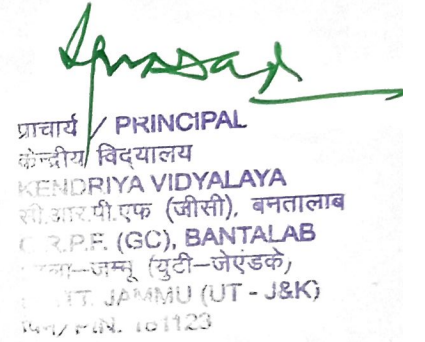 प्राचार्य / PRINCIPAL
केन्द्रीय विद्यालय
KENDRIYA VIDYALAYA
सी.आर.पी.एफ (जीसी), बनतालाब
C.R.P.F. (GC), BANTALAB
जम्मू (युटी–जेएंडके)
JAMMU (UT - J&K)